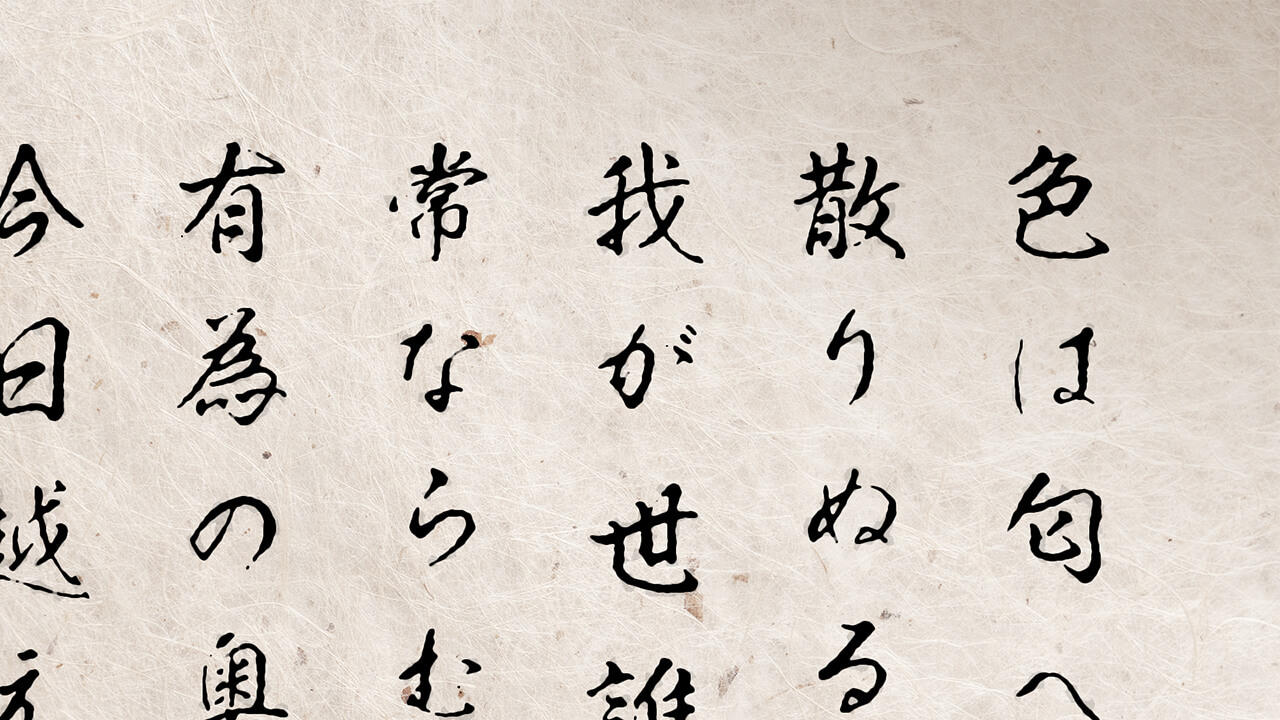 色は匂へ
散りぬる
我が世誰
常ならむ
有為の奥
今日越